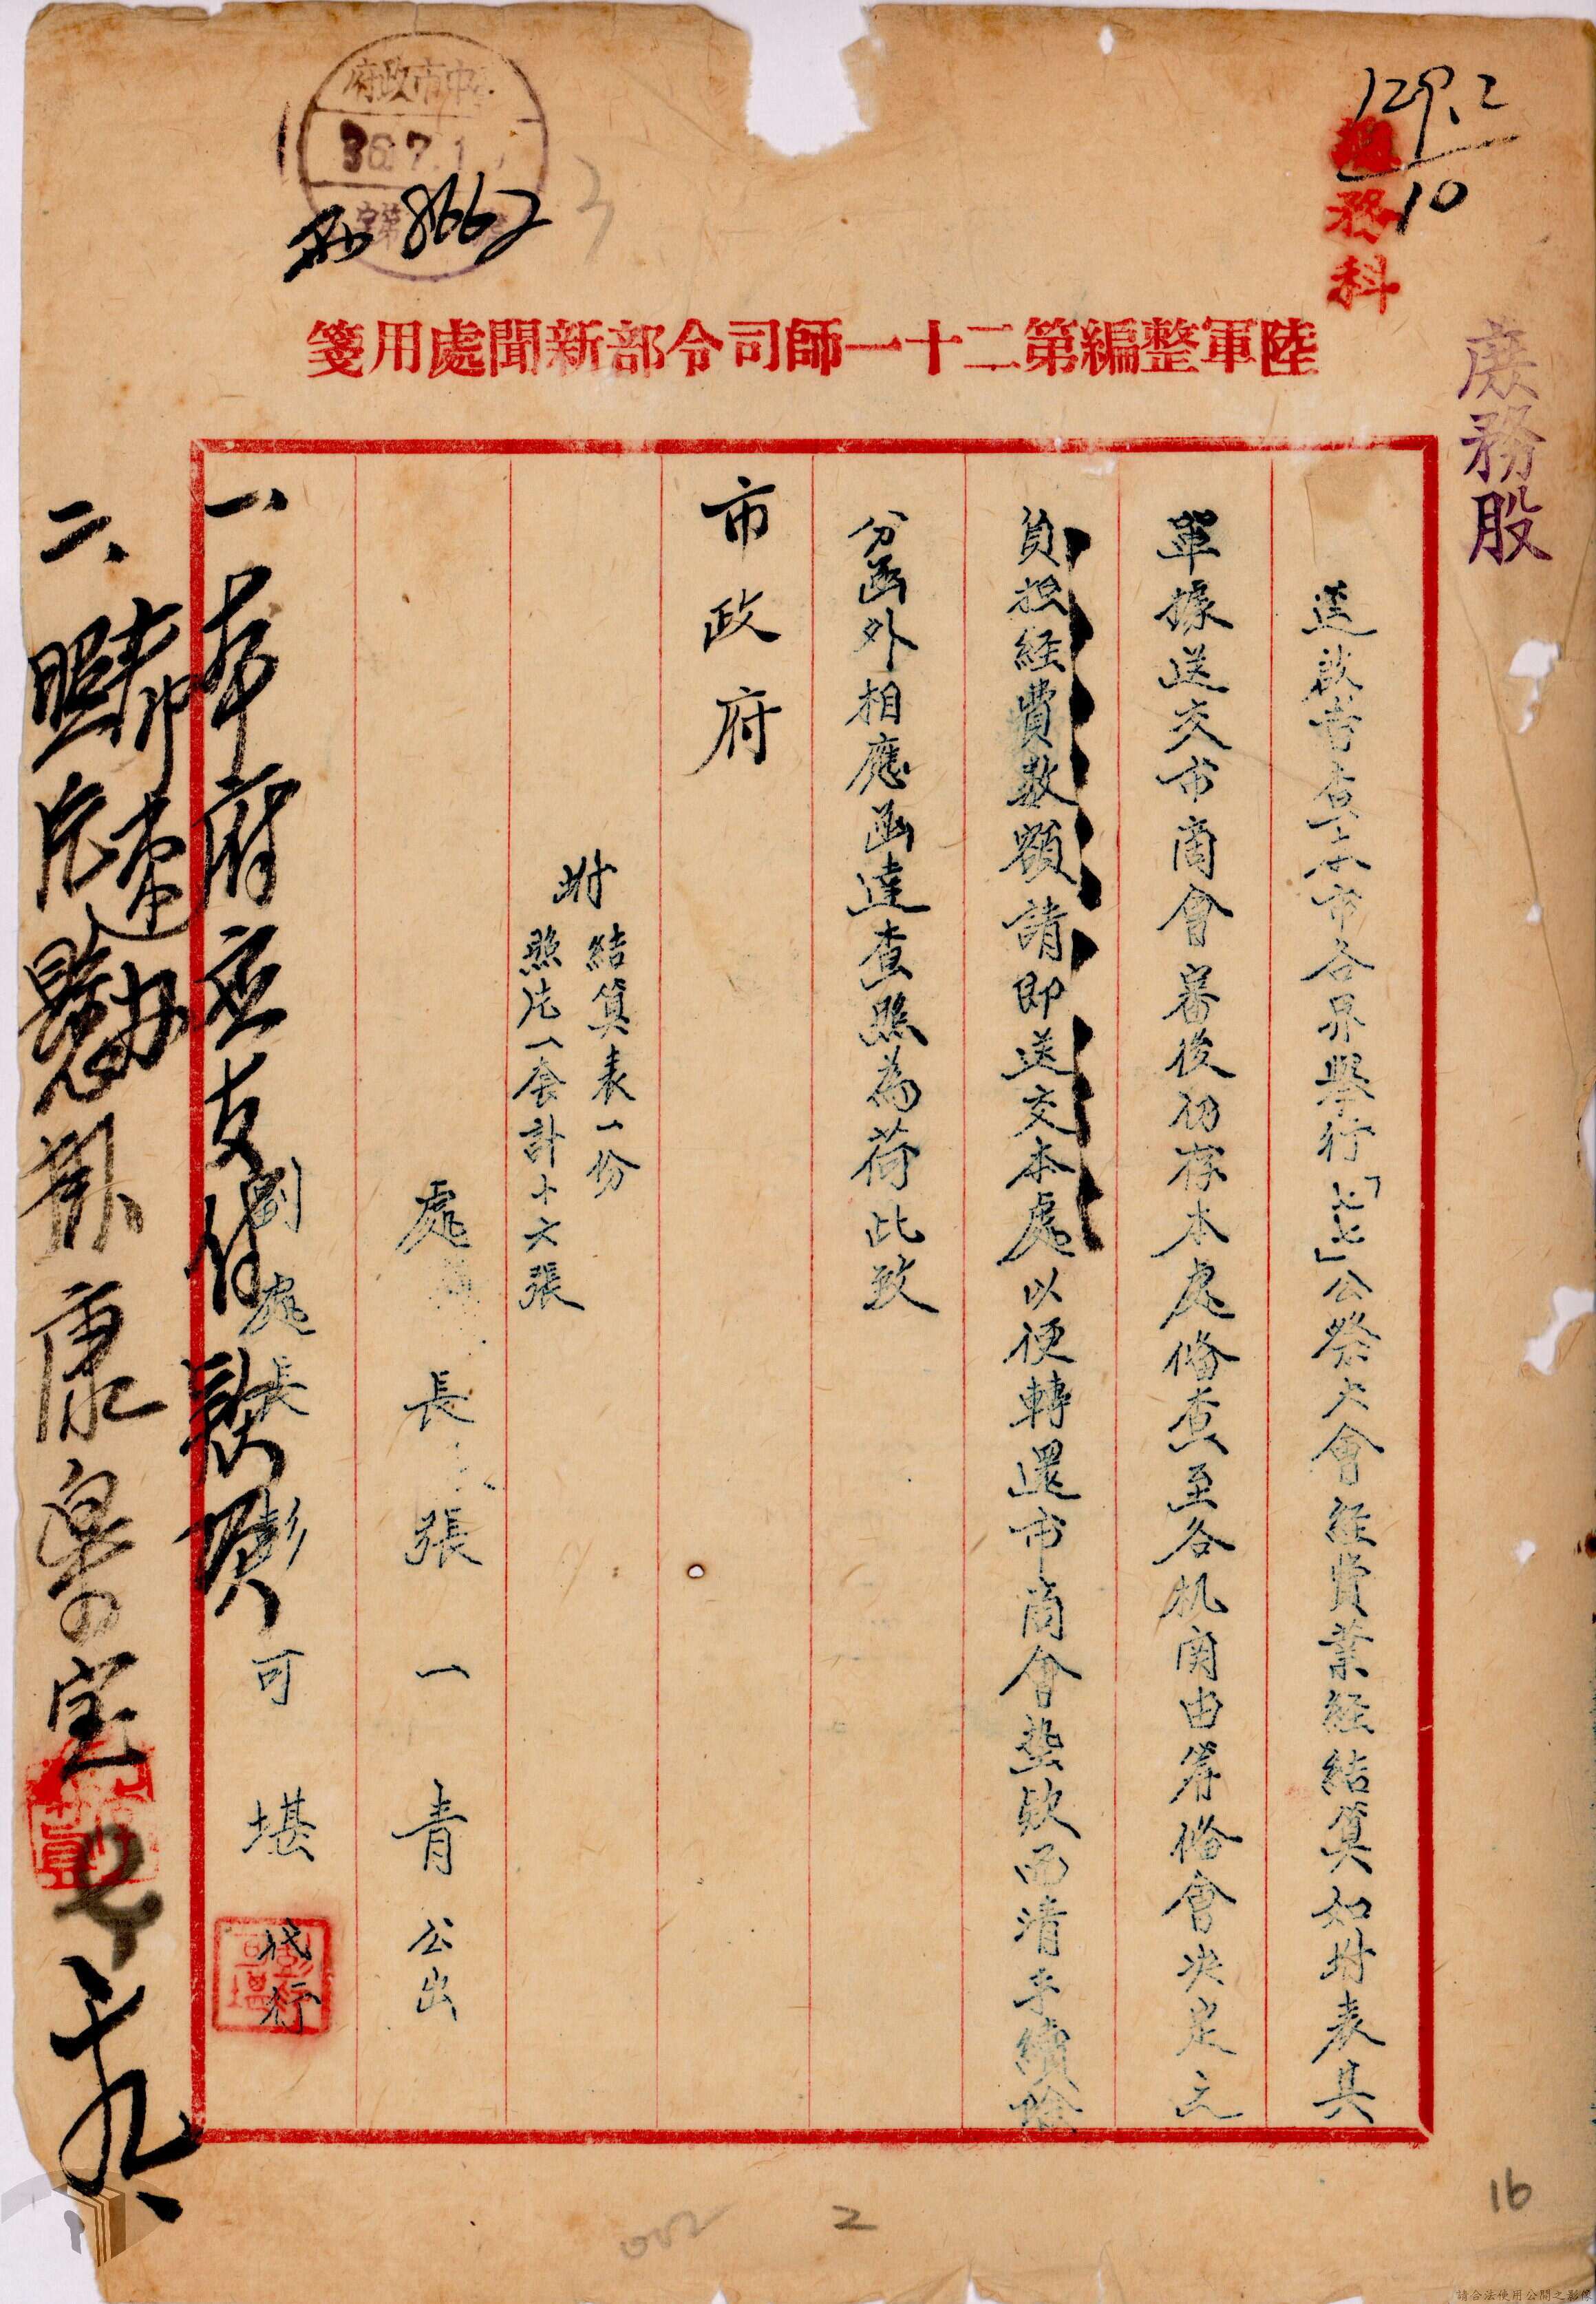 129.2
10
總務科
庶務股
中市政府
36.7.1
8662
陸軍整編第二十一師司令部新聞處用箋
逕啟者查本市各界舉行「七七」公祭大會經費業經結算如附表其
單據送交市商會審後仍存本處備查至各机関由筹備會決定之
負担経費数額請即送交本處以便轉還市商會墊款而清手續除
分函外相應函達查照為荷此致
市政府
附
結算表一份
照片一套計十六張
處長張一青公出
副處長彭可堪代行
一、本府應支付款項
二、照片懸掛康樂室
十九
16
2
002
請合法使用公開之影像